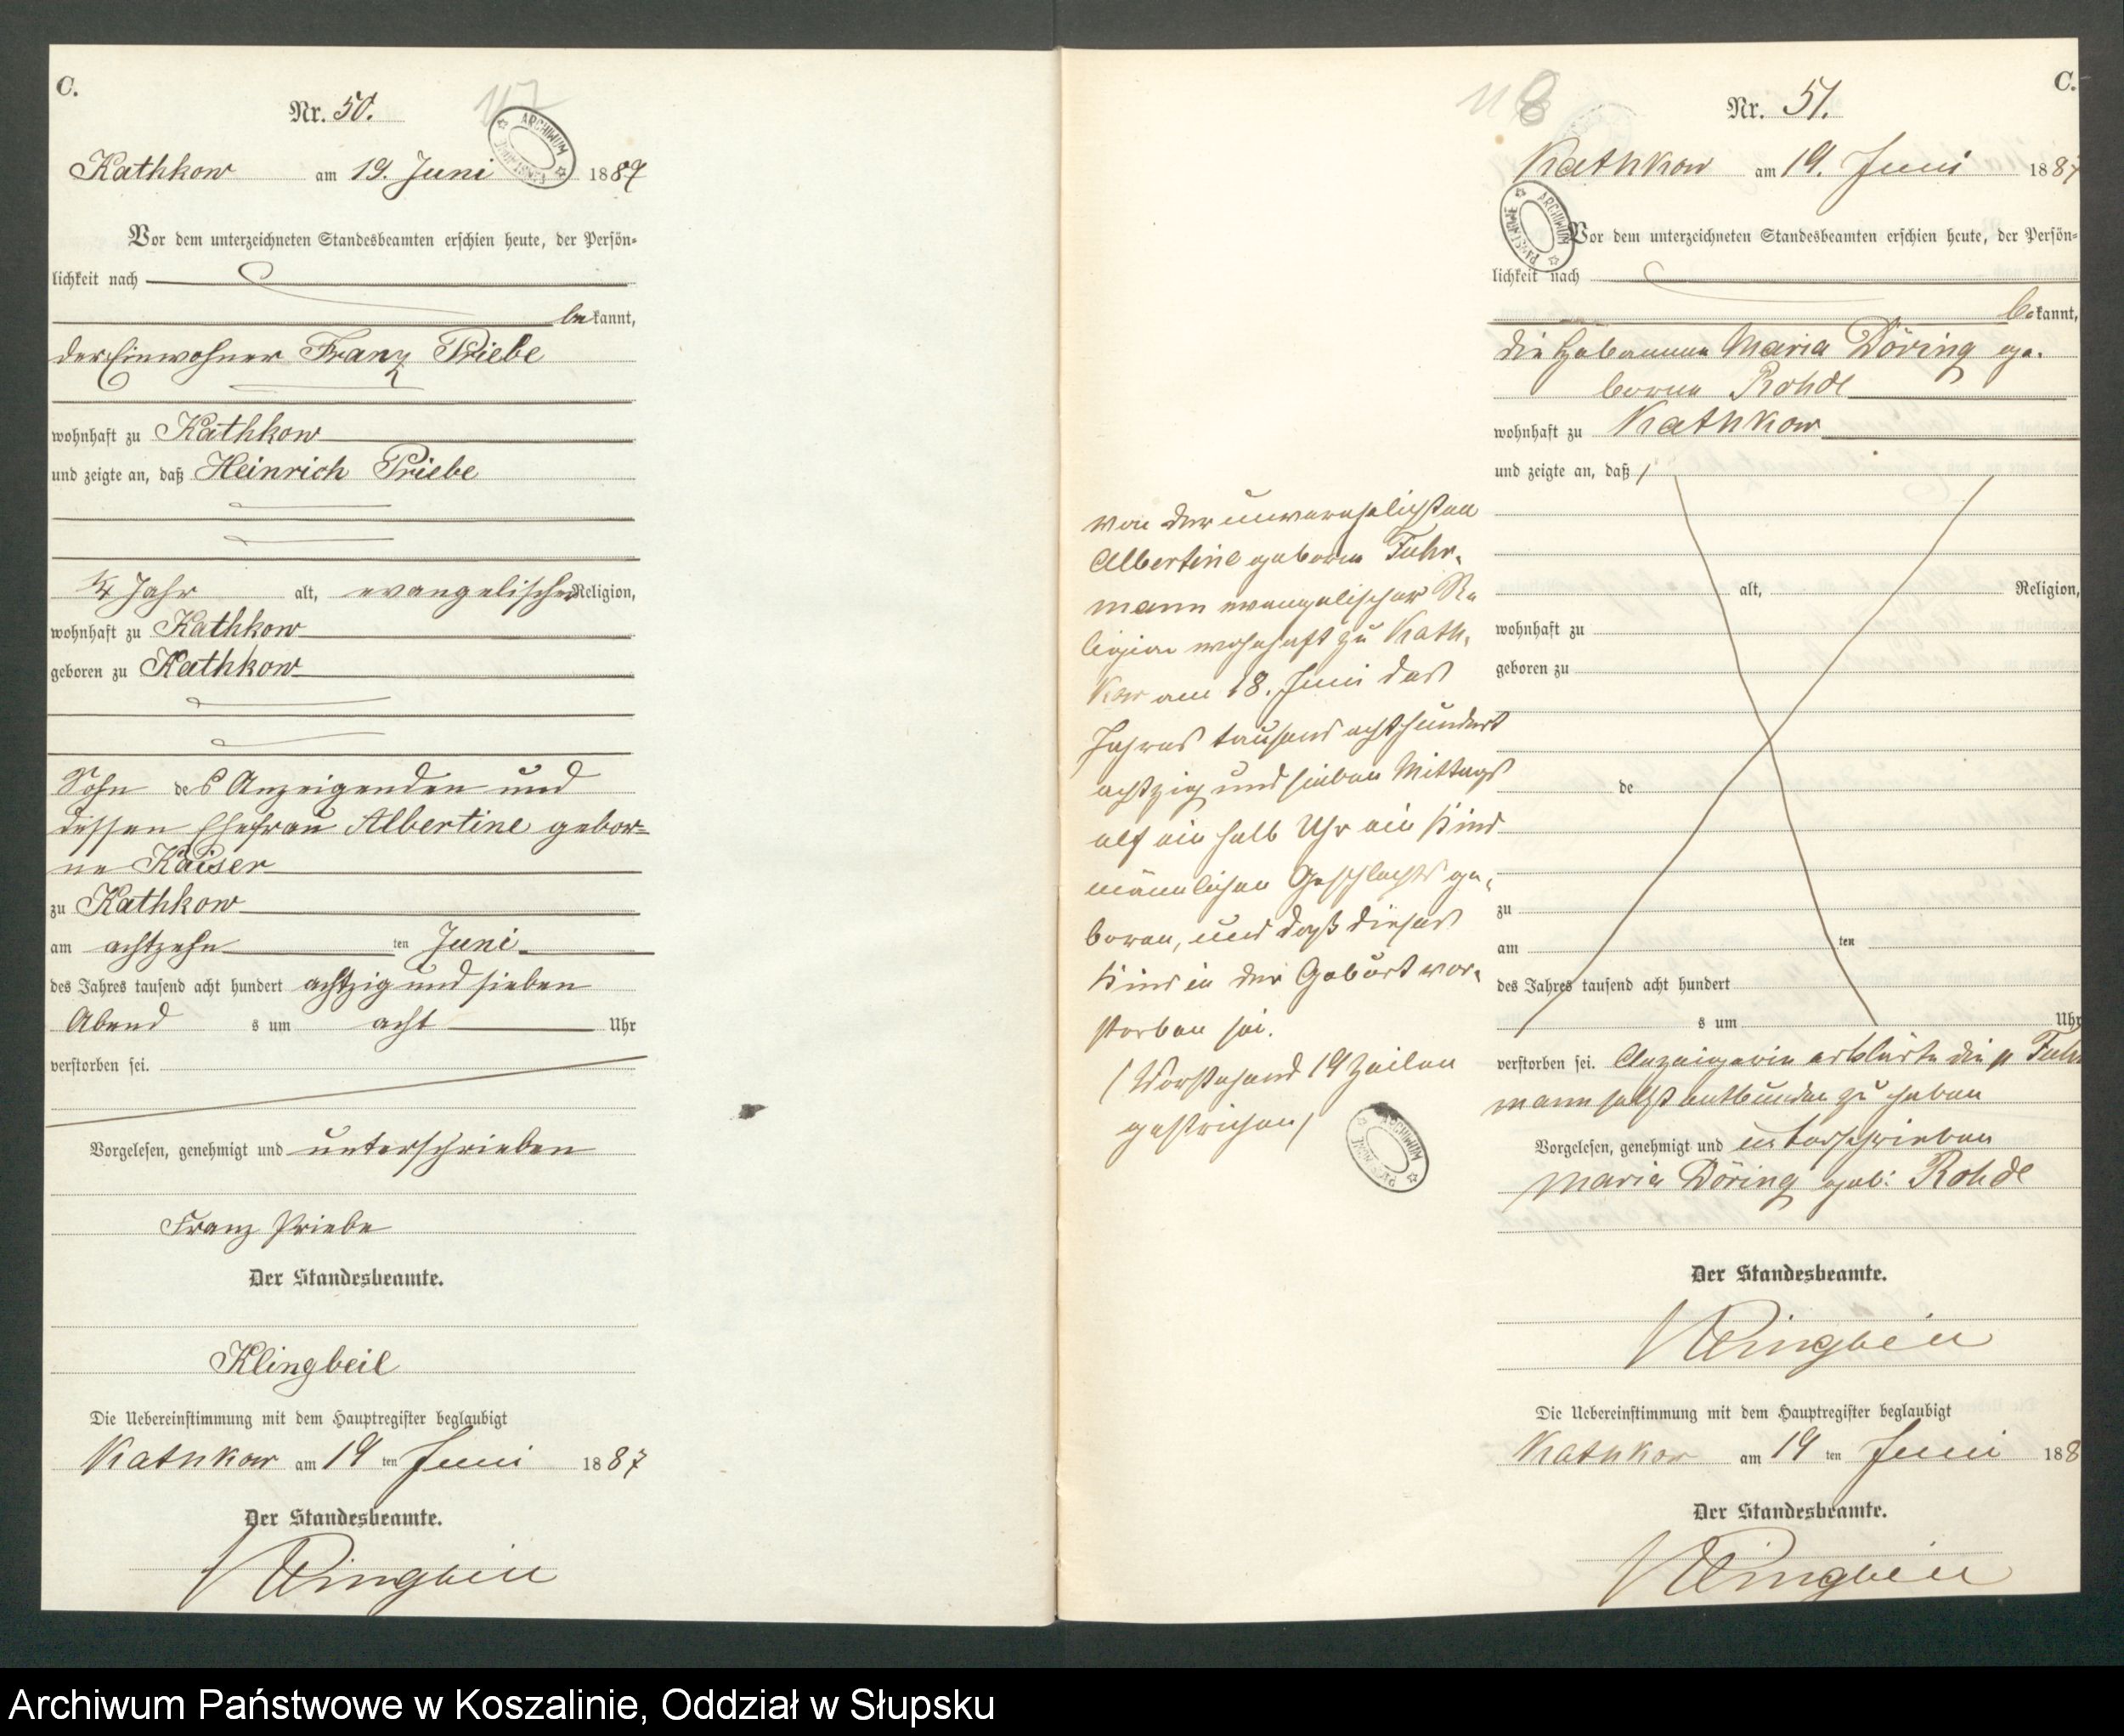 C.
117
Nr. 50.
ARCHIWUM PAŃSTWOWE
Kathkow am 19. Juni 1887
Vor dem unterzeichneten Standesbeamten erschien heute, der Persön-
lichkeit nach
bekannt,
der Einwohner Franz Priebe
wohnhaft zu Kathkow
und zeigte an, daß Heinrich Priebe
¼ Jahr alt, evangelischer Religion,
wohnhaft zu Kathkow
geboren zu Kathkow
Sohn des Anzeigenden und
dessen Ehefrau Albertine gebor-
ne Kaiser
zu Kathkow
am achtzehn ten Juni
des Jahres tausend acht hundert achtzig und sieben
Abend s um acht Uhr
verstorben sei.
Vorgelesen, genehmigt und unterschrieben
Franz Priebe
Der Standesbeamte.
Klingbeil
Die Uebereinstimmung mit dem Hauptregister beglaubigt
Kathkow am 19 ten Juni 1887
Der Standesbeamte.
Klingbeil
118
C.
Nr. 51.
Kathkow am 19. Juni 1887
ARCHIWUM PAŃSTWOWE
Vor dem unterzeichneten Standesbeamten erschien heute, der Persön-
lichkeit nach
bekannt,
die Hebamme Maria Döring ge-
borne Rohde
wohnhaft zu Kathkow
und zeigte an, daß /
von der unverehelichten
Albertine geborne Fuhr-
mann evangelischer Re
ligion wohnhaft zu Kath-
kow am 18. Juni des
Jahres tausend acht hundert
achtzig und sieben Mittags
elf ein halb Uhr ein Kind
männlichen Geschlechts ge-
boren, und daß dieses
Kind in der Geburt ver-
storben sei.
(Vorstehend 14 Zeilen
gestrichen)
ARCHIWUM PAŃSTWOWE
alt, Religion,
wohnhaft zu
geboren zu
de
zu
am ten
des Jahres tausend acht hundert
s um Uhr
verstorben sei. Anzeigerin erklärte die p Fuhr
mann selbst entbunden zu haben
Vorgelesen, genehmigt und unterschrieben
Maria Döring geb: Rohde
Der Standesbeamte.
Klingbeil
Die Uebereinstimmung mit dem Hauptregister beglaubigt
Kathkow am 19 ten Juni 188
Der Standesbeamte.
Klingbeil
Archiwum Państwowe w Koszalinie, Oddział w Słupsku